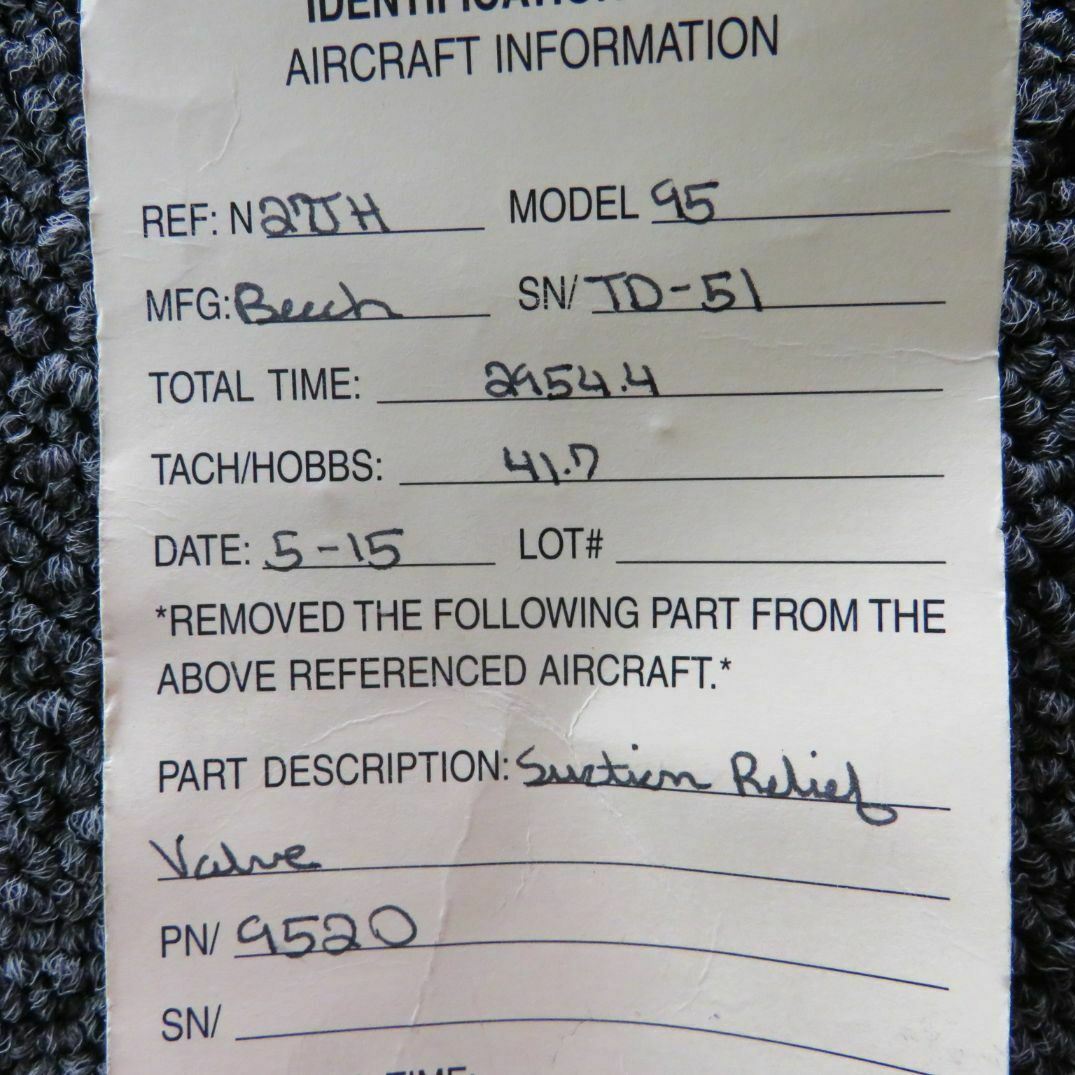 IDENTIFICATION
AIRCRAFT INFORMATION
REF: N27JH MODEL 95
MFG: Beech SN/ TD-51
TOTAL TIME: 2954.4
TACH/HOBBS: 41.7
DATE: 5-15 LOT#
*REMOVED THE FOLLOWING PART FROM THE
ABOVE REFERENCED AIRCRAFT.*
PART DESCRIPTION: Suction Relief
Valve
PN/ 9520
SN/
TIME: